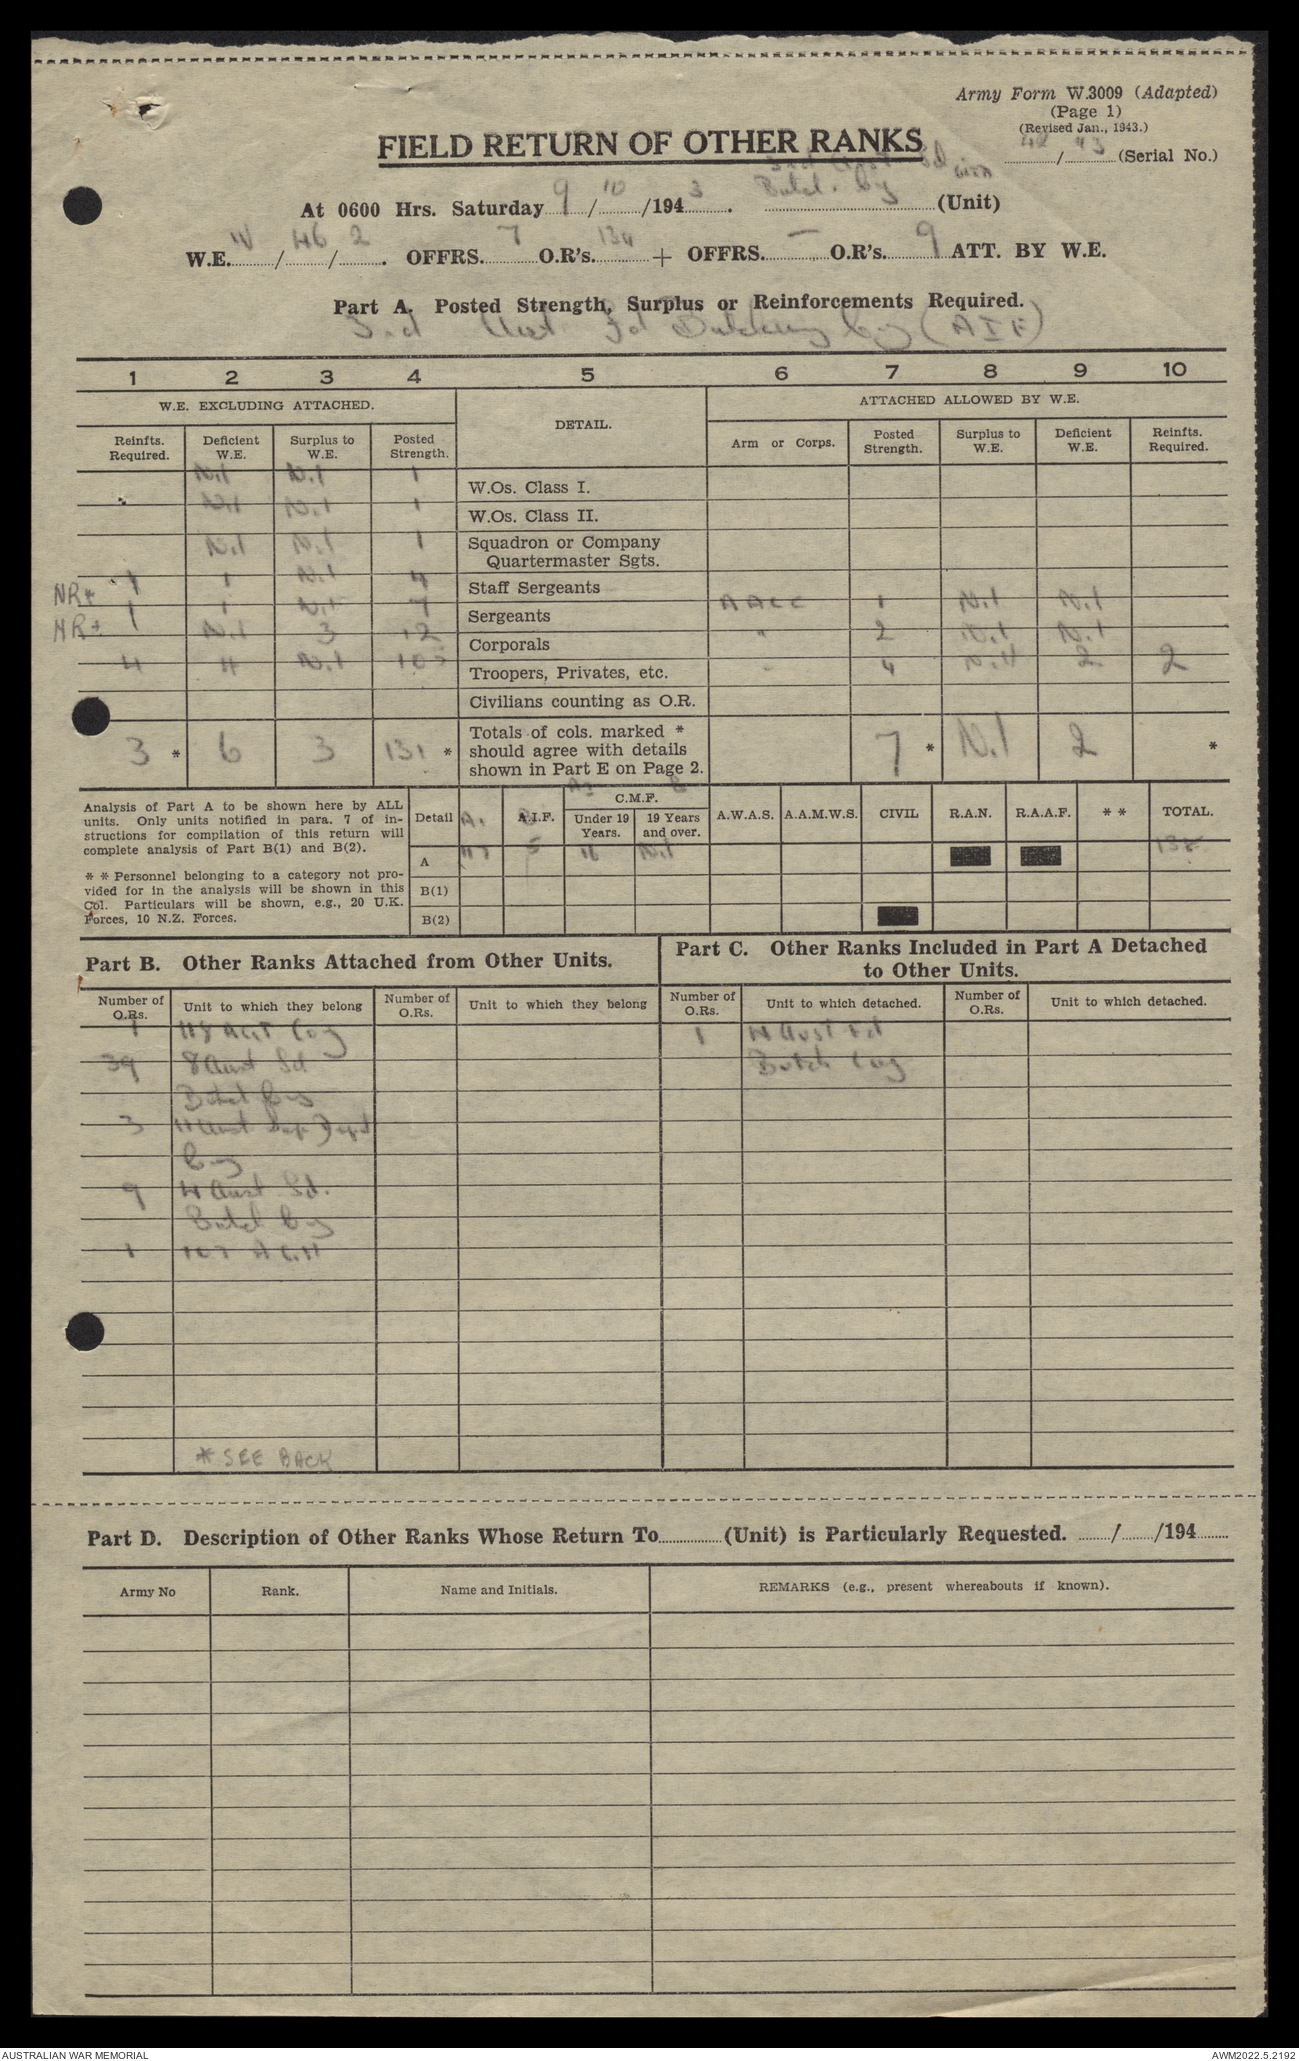 Army Form W.3009 (Adapted)
(Page 1)
(Revised Jan., 1943.)
FIELD RETURN OF OTHER RANKS
42 / 43 (Serial No.)
3rd Aust Fd
Butch. Coy
At 0600 Hrs. Saturday 9 / 10 /194 3. (Unit)
W.E. IV / 46 / 2. OFFRS. 7 O.R's. 134 + OFFRS. — O.R's. 9 ATT. BY W.E.
Part A. Posted Strength, Surplus or Reinforcements Required.
3rd Aust Fd Butchery Coy (AIF)
1 2 3 4 5 6 7 8 9 10
W.E. EXCLUDING ATTACHED. DETAIL. ATTACHED ALLOWED BY W.E.
Reinfts. Required. Deficient W.E. Surplus to W.E. Posted Strength. Arm or Corps. Posted Strength. Surplus to W.E. Deficient W.E. Reinfts. Required.
Nil Nil 1 W.Os. Class I.
Nil Nil 1 W.Os. Class II.
Nil Nil 1 Squadron or Company Quartermaster Sgts.
NR* 1 1 Nil 4 Staff Sergeants
NR* 1 1 Nil 7 Sergeants AACC 1 Nil Nil
Nil 3 12 Corporals " 2 Nil Nil
4 4 Nil 105 Troopers, Privates, etc. 4 Nil 2 2
Civilians counting as O.R.
3 * 6 3 131 * Totals of cols. marked * should agree with details shown in Part E on Page 2. 7 * Nil 2 *
Analysis of Part A to be shown here by ALL
units. Only units notified in para. 7 of in-
structions for compilation of this return will
complete analysis of Part B(1) and B(2).
* * Personnel belonging to a category not pro-
vided for in the analysis will be shown in this
Col. Particulars will be shown, e.g., 20 U.K.
Forces, 10 N.Z. Forces.
Detail A. A.I.F. C.M.F. A.W.A.S. A.A.M.W.S. CIVIL R.A.N. R.A.A.F. * * TOTAL.
Under 19 Years. 19 Years and over.
A 117 5 16 Nil 138
B(1)
B(2)
Part B. Other Ranks Attached from Other Units.
Part C. Other Ranks Included in Part A Detached
to Other Units.
Number of O.Rs. Unit to which they belong Number of O.Rs. Unit to which they belong Number of O.Rs. Unit to which detached. Number of O.Rs. Unit to which detached.
1 118 AGT Coy 1 4 Aust Fd
39 8 Aust Fd Butch Coy
Butch Coy
3 11 Aust Sup Depot
Coy
9 4 Aust Fd.
Butch Coy
1 107 AGH
* SEE BACK
Part D. Description of Other Ranks Whose Return To (Unit) is Particularly Requested. / /194
Army No Rank. Name and Initials. REMARKS (e.g., present whereabouts if known).
AUSTRALIAN WAR MEMORIAL AWM2022.5.2192